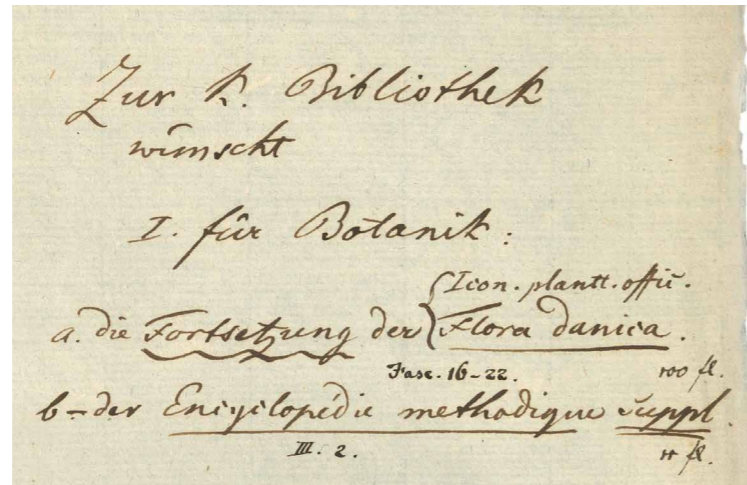 Zur K. Bibliothek
wünscht
I. für Botanik:
{Icon. plantt. offic.
a. die Fortsetzung der {Flora danica.
Fasc. 16-22. 100 fl.
b - der Encyclopédie methodique Suppl.
III. 2. fl.